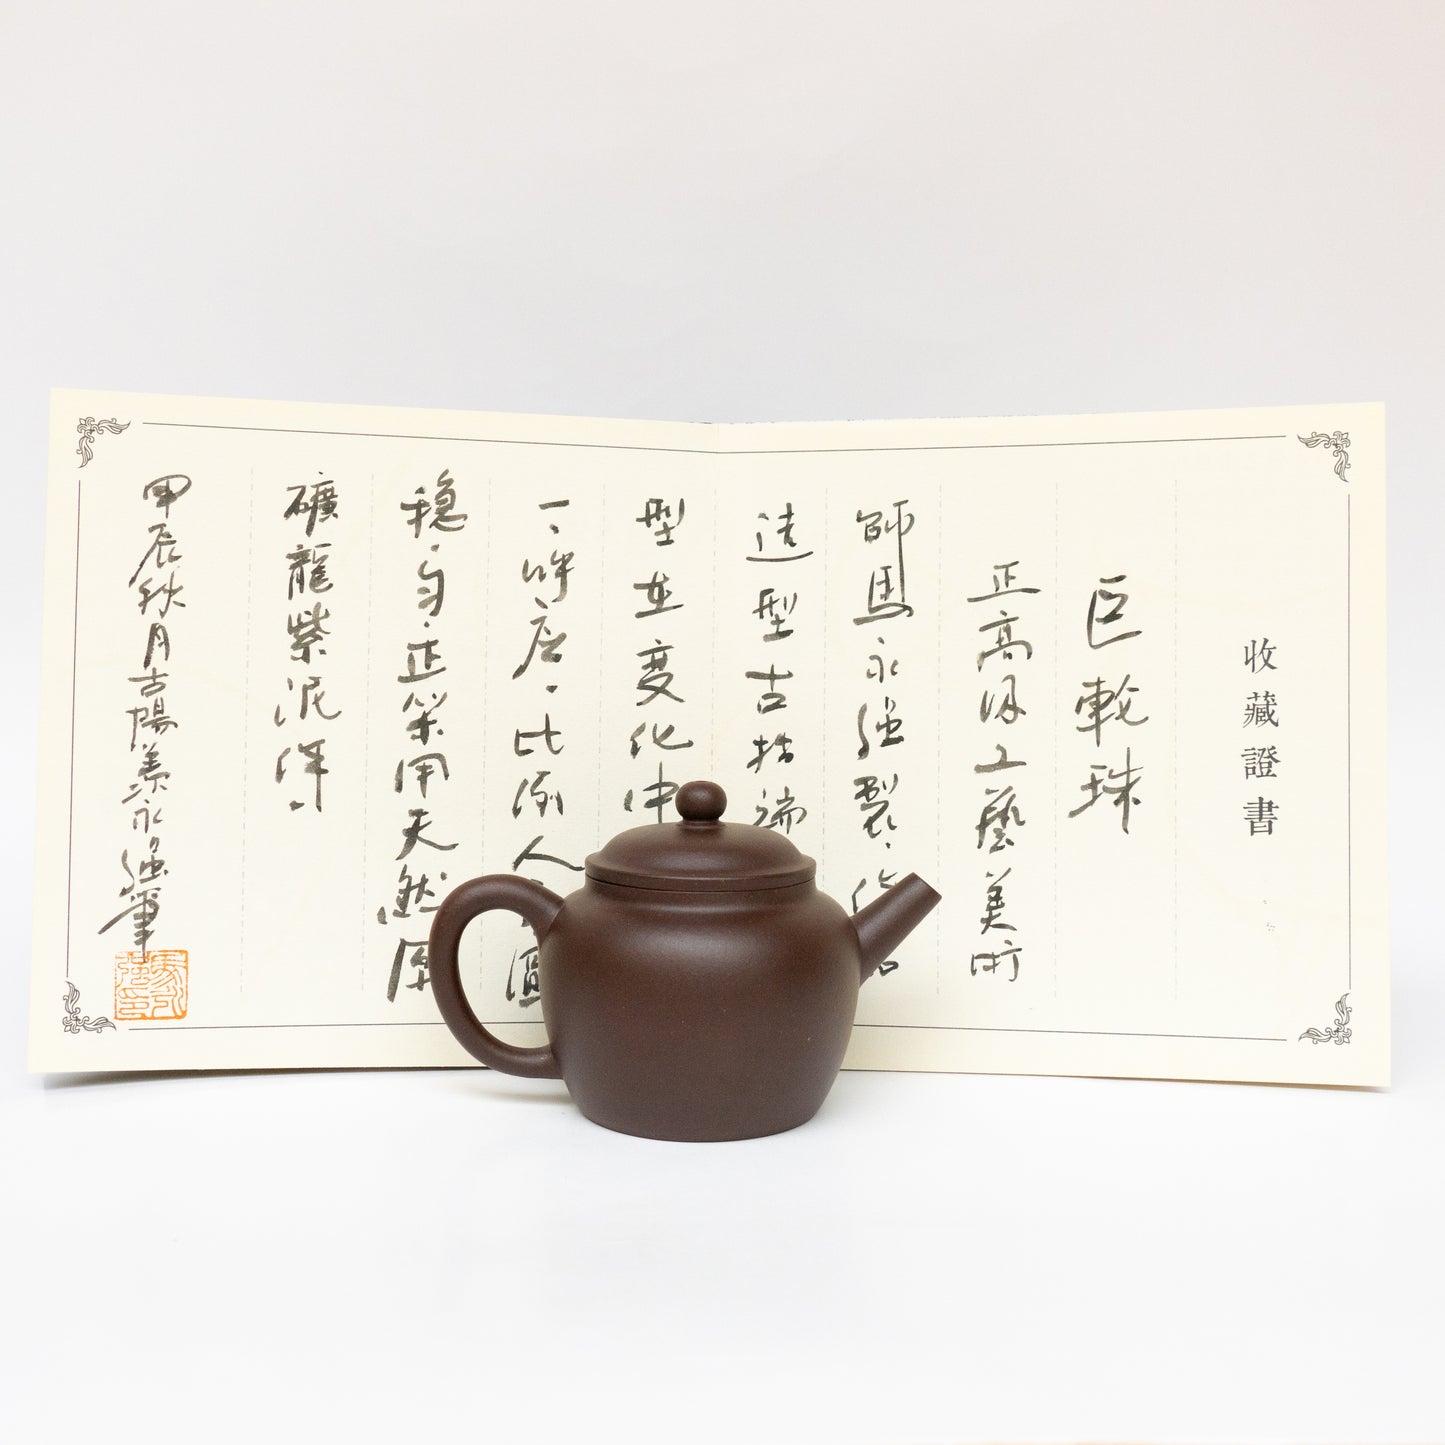 收藏證書
巨輪珠
正高級工藝美術
師馬永強製、作品
造型古拙端
型在變化中
一、呼應、比例
穩、勻、正、
用天然原
礦龍紫泥
甲辰秋月古陽羨永強筆
馬永強印